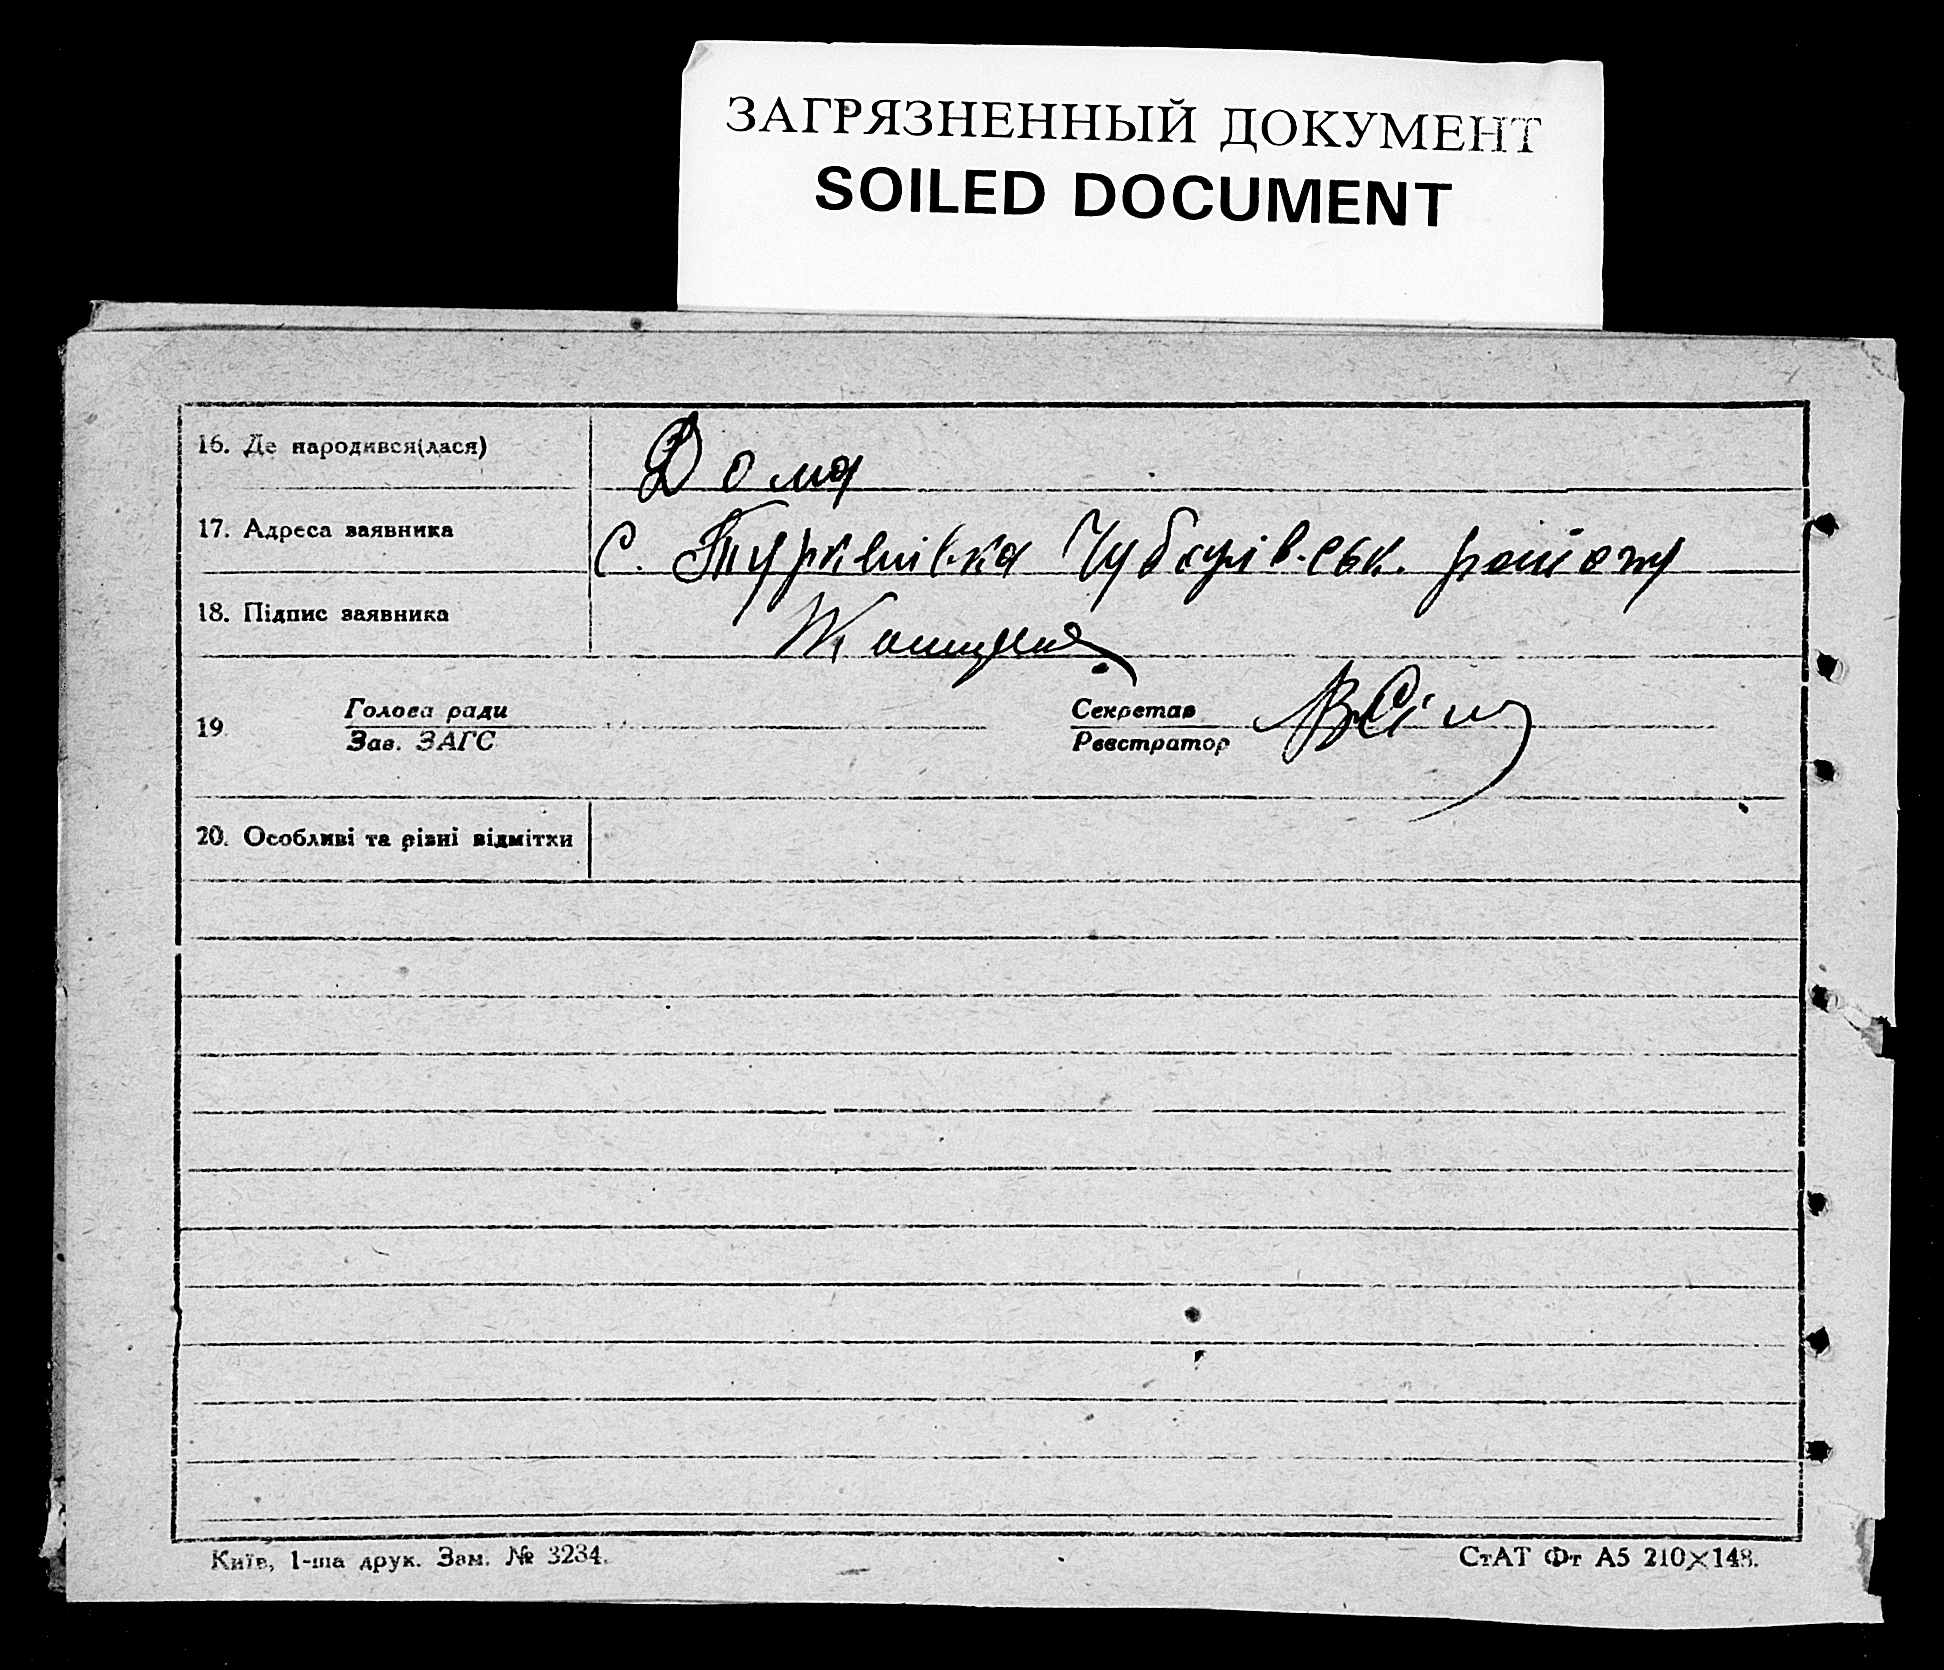 ЗАГРЯЗНЕННЫЙ ДОКУМЕНТ
SOILED DOCUMENT
16. Де народився(лася) Дома
17. Адреса заявника С. Чубарівськ. району
18. Підпис заявника
19. Голова ради Секретар
Зав. ЗАГС Реєстратор
20. Особливі та різні відмітки
Київ, 1-ша друк. Зам. № 3234. СтАТ Фт А5 210×148.